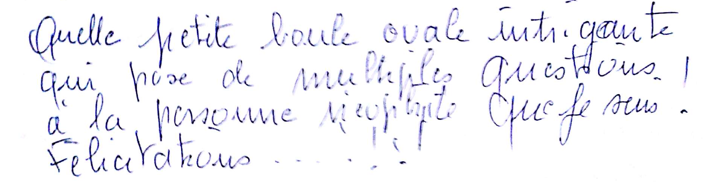 Quelle petite boule ovale intrigante
qui pose de multiples questions !
à la personne néophyte que je suis .
Félicitations ..... ! !